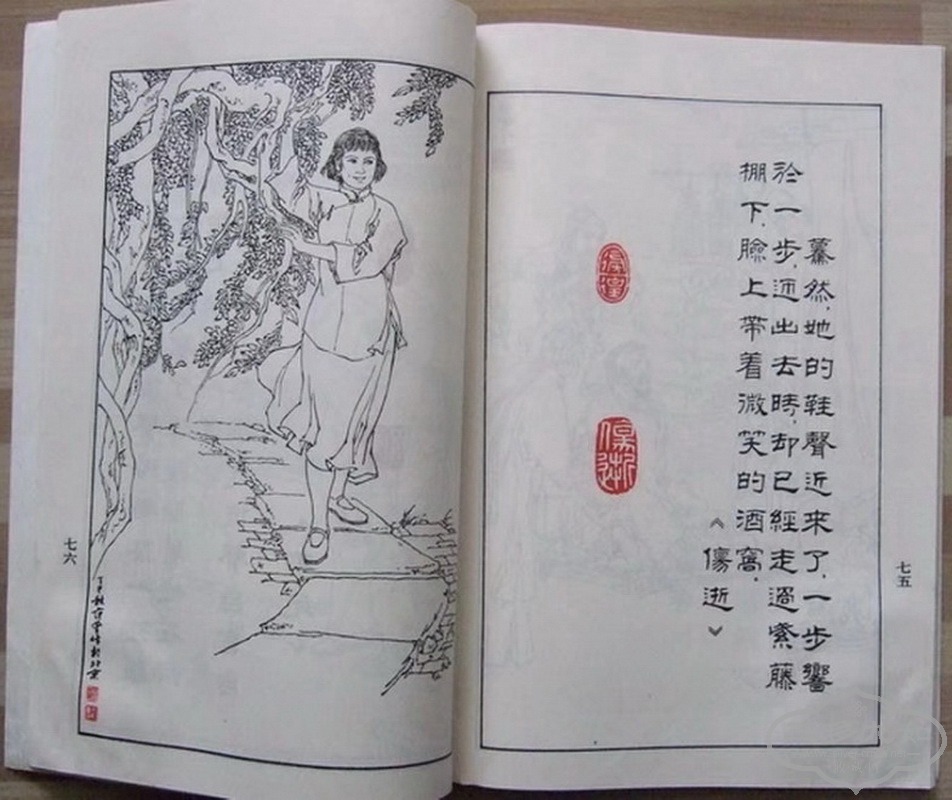 七五
驀然，她的鞋聲近來了，一步響
於一步，迎出去時，却已經走過紫藤
棚下，臉上帶着微笑的酒窩。
《傷逝》
傷逝
七六